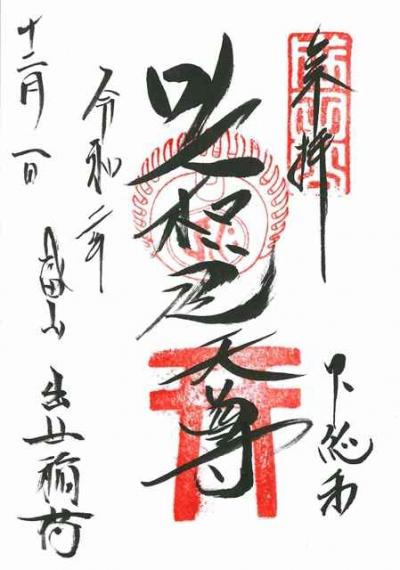 奉拝
下総
吒枳尼天尊
令和二年
十二月一日
成田山 出世稲荷